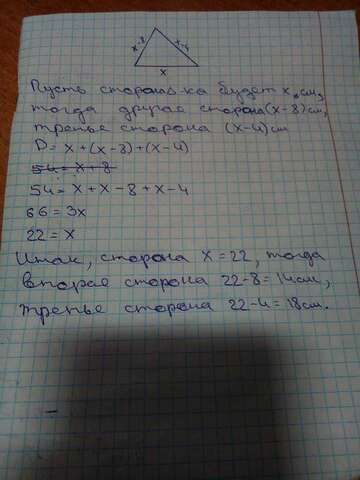 x-8
x-4
x
Пусть сторона ∆-ка будет x см,
тогда другая сторона (x-8) см,
третье сторона (x-4) см
P = x + (x-8) + (x-4)
54 = x + 8
54 = x + x - 8 + x - 4
66 = 3x
22 = x
Итак, сторона x = 22, тогда
вторая сторона 22-8 = 14 см,
третье сторона 22-4 = 18 см.